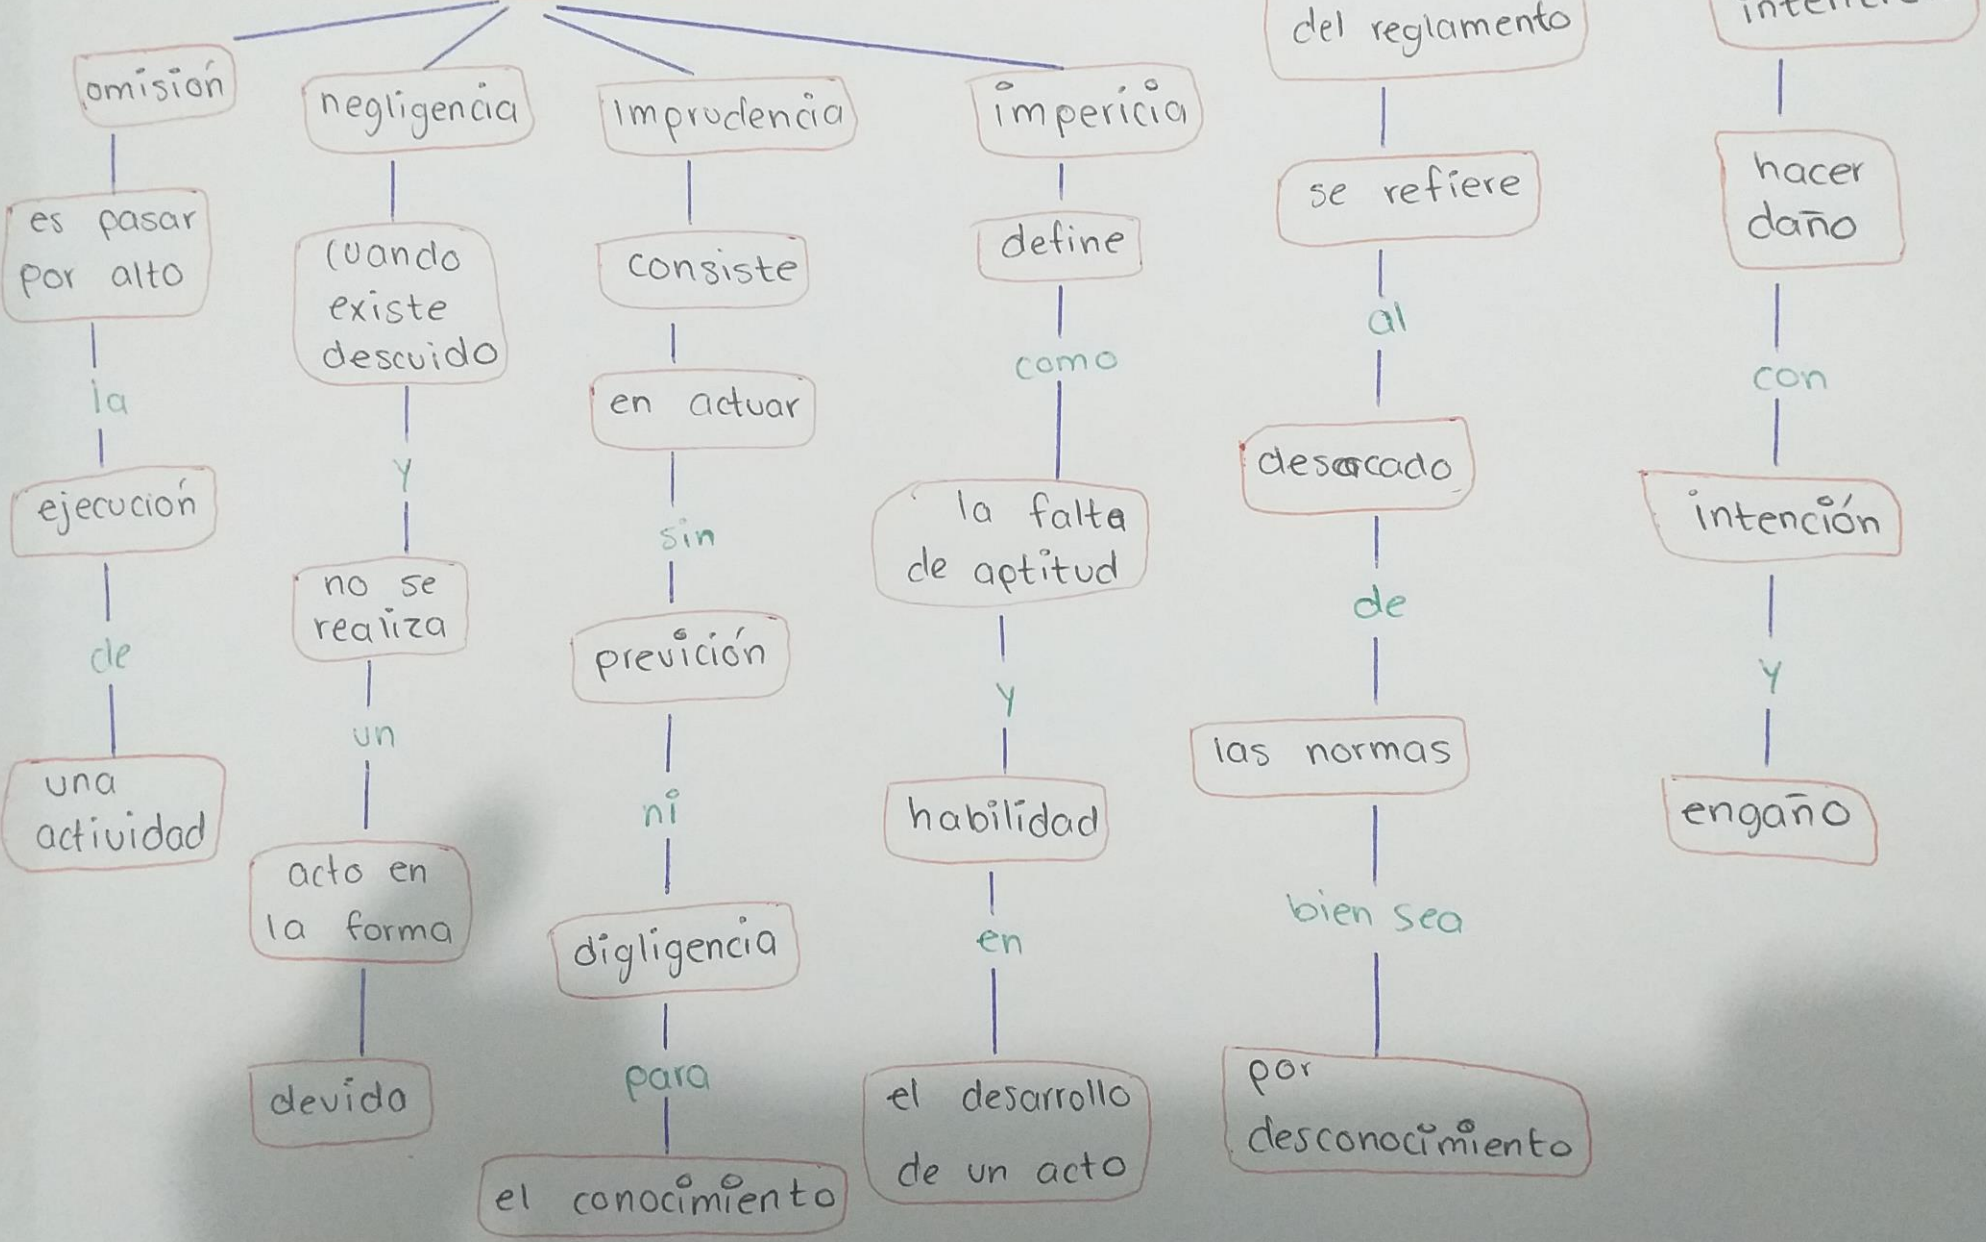 omisión
es pasar
por alto
la
ejecución
de
una
actividad
negligencia
cuando
existe
descuido
y
no se
realiza
un
acto en
la forma
devida
Imprudencia
consiste
en actuar
sin
previción
ni
digligencia
para
el conocimiento
impericia
define
como
la falta
de aptitud
y
habilidad
en
el desarrollo
de un acto
del reglamento
se refiere
al
desacado
de
las normas
bien sea
por
desconocimiento
hacer
daño
con
intención
y
engaño